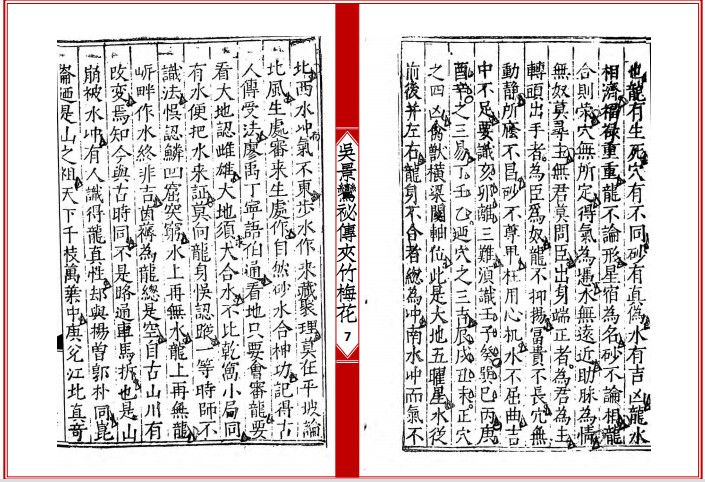 也龍有生死穴有不同砂有真偽水有吉凶龍水
相濟福祿重重龍不論形星宿為名砂不論相龍
合則榮穴無所定得氣為馮水無遠近助脉為情
無奴莫尋主無君莫問臣出身端正者為君為主
轉頭出手者為臣為奴龍不抑揚冨貴不長穴無
動靜所應不昌砂不尊甲枉用心机水不屈曲吉
中不足要識亥卯離三難須識壬子癸巽巳丙庚
酉辛之三易丁壬乙迺穴之三吉辰戌丑未正穴
之四凶禽獸橫梁関軸位此是大地五曜星水從
前後并左右龍身不合者總為冲南水冲而氣不
吳景鸞祕傳夾竹梅花
7
北西水冲氣不東步水作來藏聚理莫在平坡論
北風生處審来生處作自然砂水合神功記得古
人傳受法廖禹丁寧語伯通看地只要會審龍要
看大地認雌雄大地須大合水不比乾窩小局同
有水便把水来証莫向龍身悞認蹤一等時師不
識法悞認鱗凹窟突窮水上再無水龍上再無龍
畔作水終非吉茵褥為龍總是空自古山川有
改变焉知今與古時同不是路通車馬拆也是山
崩被水冲有人識得龍直性却與楊曾郭朴同崑
崙迺是山之祖天下千枝萬葉中庚兊江北直奇